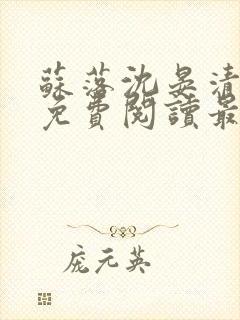 蘇落沈晏清
免費閱讀最
庞元英